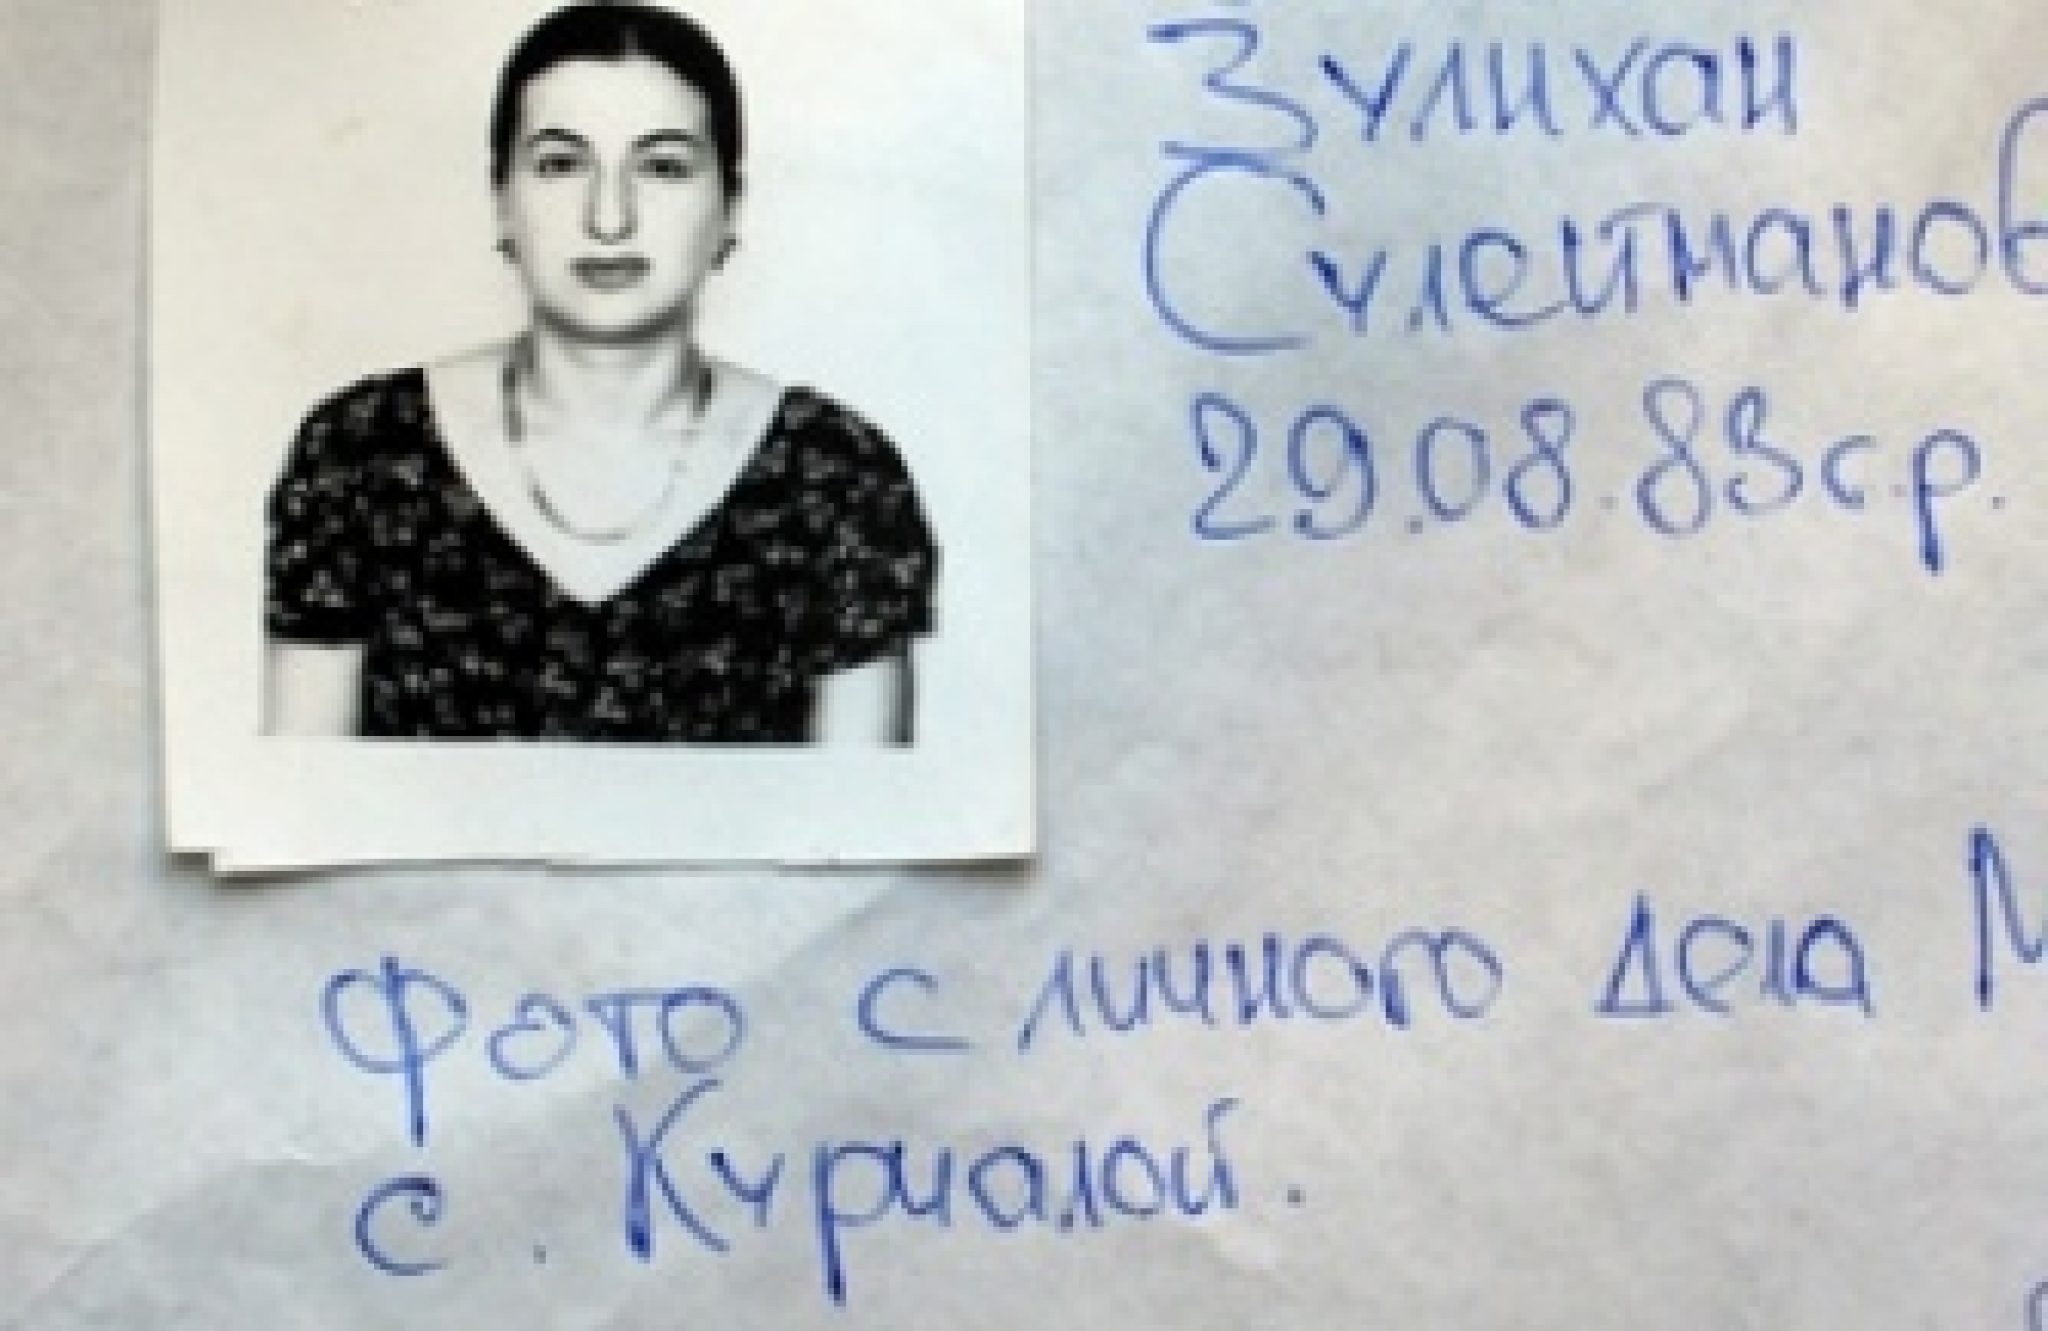 Зулихан
Сулеймanов
29.08.83 г.р.
Фото с личного дела М
с. Курчалой.